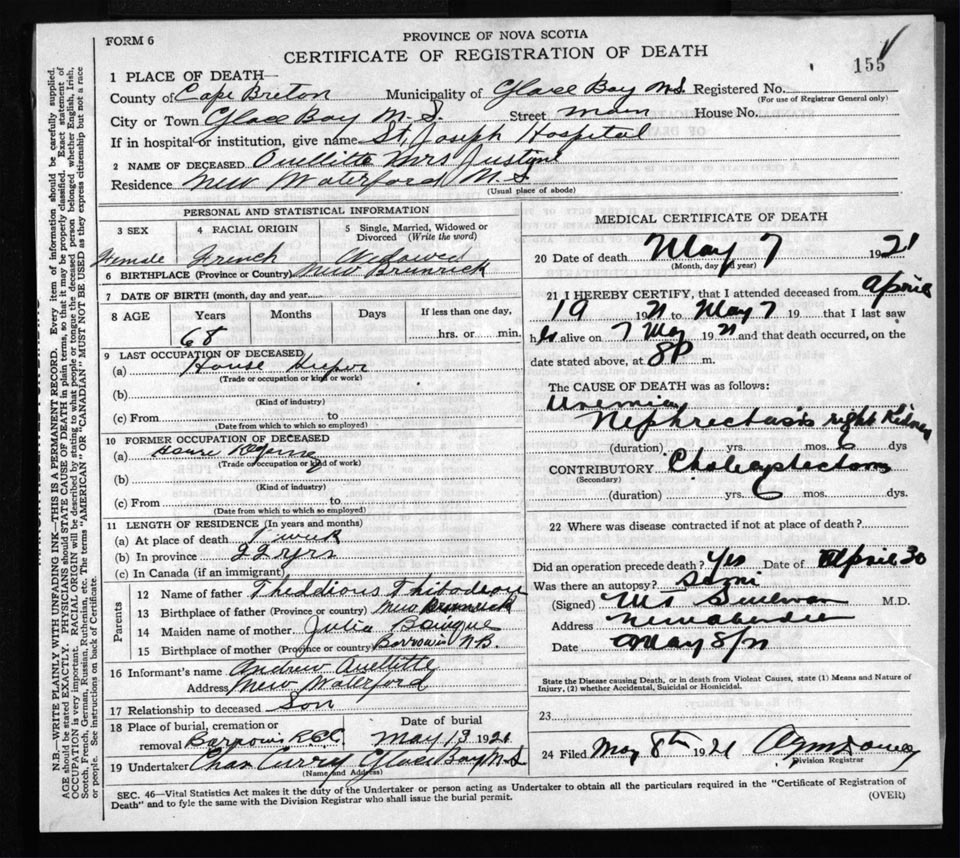 FORM 6
PROVINCE OF NOVA SCOTIA
CERTIFICATE OF REGISTRATION OF DEATH
155
1 PLACE OF DEATH—
County of Cape Breton Municipality of Glace Bay N.S. Registered No.
(For use of Registrar General only)
City or Town Glace Bay N.S. Street Main House No.
If in hospital or institution, give name St. Joseph Hospital
2 NAME OF DECEASED Ouellitte Mrs Justine
Residence New Waterford N.S.
(Usual place of abode)
PERSONAL AND STATISTICAL INFORMATION
3 SEX 4 RACIAL ORIGIN 5 Single, Married, Widowed or Divorced (Write the word)
Female French Widowed
6 BIRTHPLACE (Province or Country) New Brunwick
7 DATE OF BIRTH (month, day and year
8 AGE Years Months Days If less than one day,
68 hrs. or min.
9 LAST OCCUPATION OF DECEASED
(a) House Keeper
(Trade or occupation or kind or work)
(b)
(Kind of industry)
(c) From to
(Date from which to which so employed)
10 FORMER OCCUPATION OF DECEASED
(a) House
(Trade or occupation or kind of work)
(b)
(Kind of industry)
(c) From to
(Date from which to which so employed)
11 LENGTH OF RESIDENCE (In years and months)
(a) At place of death 1 week
(b) In province 22 yrs
(c) In Canada (if an immigrant)
Parents
12 Name of father Theddious Thibodeau
13 Birthplace of father (Province or country) New Brunswick
14 Maiden name of mother Julia
15 Birthplace of mother (Province or country) N.B.
16 Informant's name Andrew Ouellitte
Address New Waterford
17 Relationship to deceased Son
18 Place of burial, cremation or removal R.C.C. Date of burial May 13 1921
19 Undertaker Chas Curry Glace Bay N.S.
(Name and Address)
MEDICAL CERTIFICATE OF DEATH
20 Date of death May 7 1921
(Month, day and year)
21 I HEREBY CERTIFY, that I attended deceased from April
19 1921 to May 7 19 that I last saw
h alive on 7 May 1921 and that death occurred, on the
date stated above, at 8P m.
The CAUSE OF DEATH was as follows:
Uremia
right Kidney
(duration) yrs. mos. dys
CONTRIBUTORY
(Secondary)
(duration) yrs. 6 mos. dys.
22 Where was disease contracted if not at place of death?
Did an operation precede death? Yes Date of April 30
Was there an autopsy?
(Signed) M.D.
Address
Date May 8/21
State the Disease causing Death, or in death from Violent Causes, state (1) Means and Nature of
Injury, (2) whether Accidental, Suicidal or Homicidal.
23
24 Filed May 8th 1921
Division Registrar
SEC. 46—Vital Statistics Act makes it the duty of the Undertaker or person acting as Undertaker to obtain all the particulars required in the "Certificate of Registration of
Death" and to fyle the same with the Division Registrar who shall issue the burial permit.
(OVER)
N.B.—WRITE PLAINLY WITH UNFADING INK—THIS IS A PERMANENT RECORD. Every item of information should be carefully supplied.
AGE should be stated EXACTLY. PHYSICIANS should STATE CAUSE OF DEATH in plain terms, so that it may be properly classified. Exact statement of
OCCUPATION is very important. RACIAL ORIGIN will be described by stating to what people or tongue the deceased person belonged whether English, Irish,
Scotch, French, German, Russian, Ruthenian, etc. The terms "AMERICAN" OR "CANADIAN" MUST NOT BE USED as they express citizenship but not a race
or people. See instructions on back of Certificate.